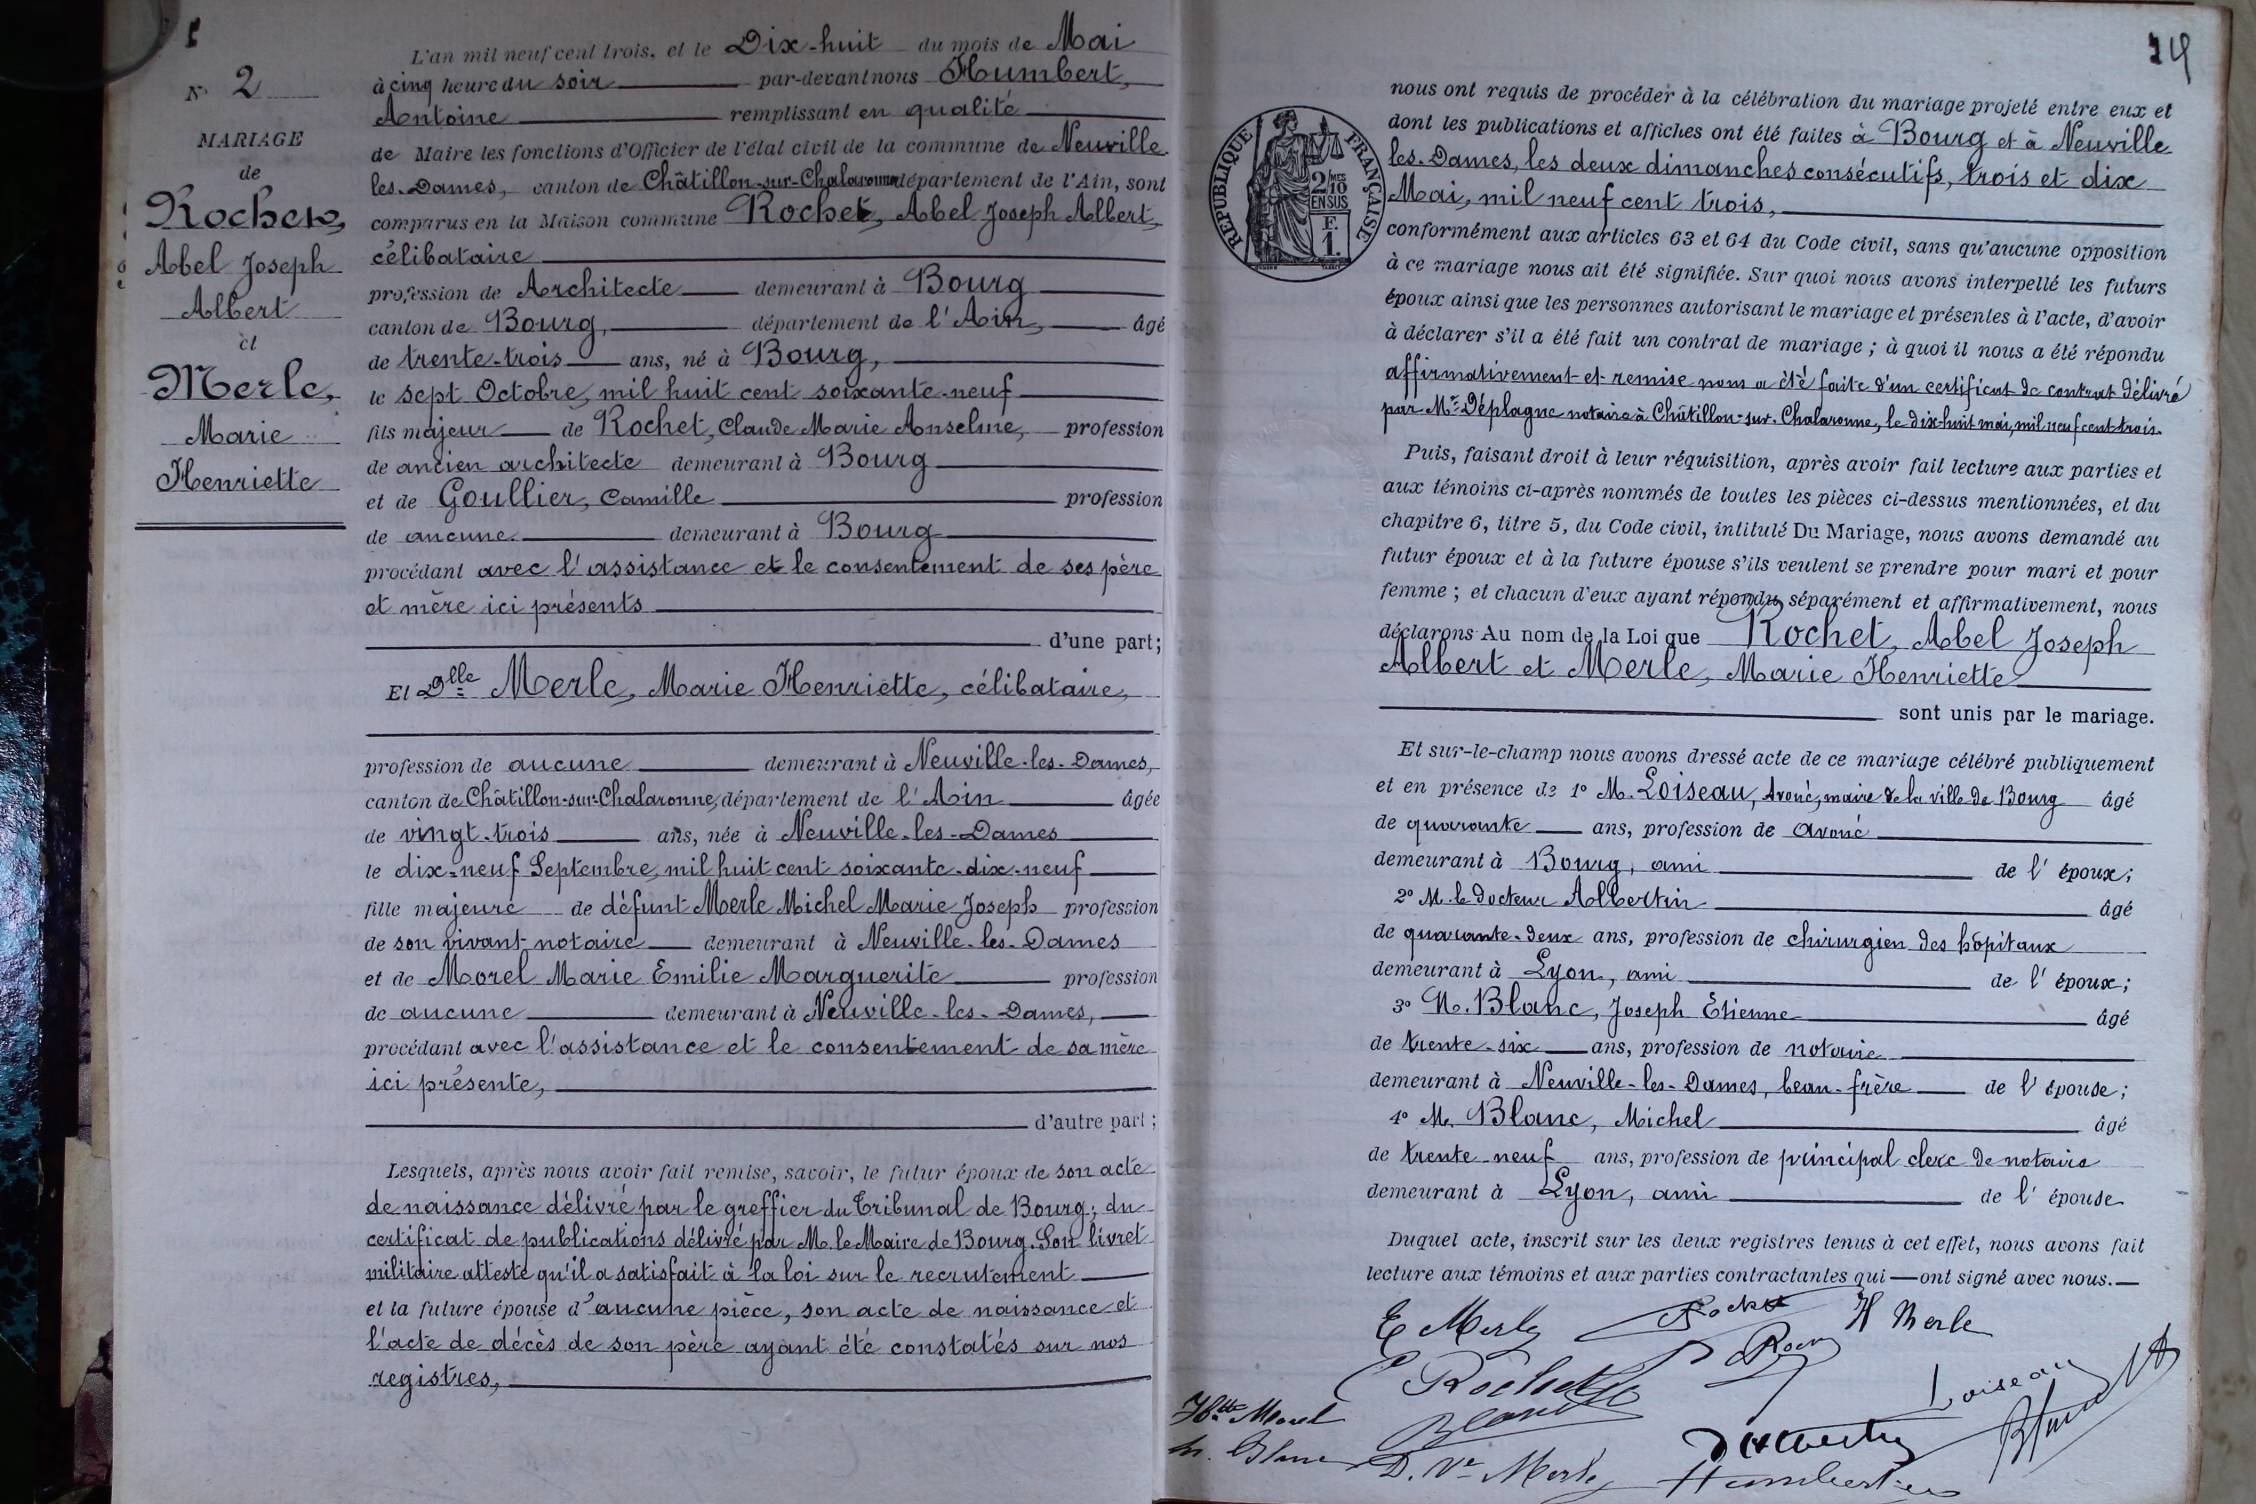 N° 2
MARIAGE
de
Rochet,
Abel Joseph
Albert
et
Merle,
Marie
Henriette
L'an mil neuf cent trois, et le Dix-huit du mois de Mai
à cinq heure du soir par-devant nous Humbert,
Antoine remplissant en qualité
de Maire les fonctions d'Officier de l'état civil de la commune de Neuville
les-Dames, canton de Châtillon-sur-Chalaronne département de l'Ain, sont
comparus en la Maison commune Rochet, Abel Joseph Albert,
célibataire
profession de Architecte demeurant à Bourg
canton de Bourg, département de l'Ain, âgé
de trente-trois ans, né à Bourg,
le sept Octobre, mil huit cent soixante-neuf
fils majeur de Rochet, Claude Marie Anselme, profession
de ancien architecte demeurant à Bourg
et de Goullier, Camille profession
de aucune demeurant à Bourg
procédant avec l'assistance et le consentement de ses père
et mère ici présents
d'une part;
Et Dlle Merle, Marie Henriette, célibataire,
profession de aucune demeurant à Neuville-les-Dames,
canton de Châtillon-sur-Chalaronne, département de l'Ain âgée
de vingt-trois ans, née à Neuville-les-Dames
le dix-neuf Septembre, mil huit cent soixante-dix-neuf
fille majeure de défunt Merle Michel Marie Joseph profession
de son vivant notaire demeurant à Neuville-les-Dames
et de Morel Marie Emilie Marguerite profession
de aucune demeurant à Neuville-les-Dames,
procédant avec l'assistance et le consentement de sa mère
ici présente,
d'autre part;
Lesquels, après nous avoir fait remise, savoir, le futur époux de son acte
de naissance délivré par le greffier du Tribunal de Bourg; du
certificat de publications délivré par M. le Maire de Bourg. Son livret
militaire atteste qu'il a satisfait à la loi sur le recrutement
et la future épouse d'aucune pièce, son acte de naissance et
l'acte de décès de son père ayant été constatés sur nos
registres,
nous ont requis de procéder à la célébration du mariage projeté entre eux et
dont les publications et affiches ont été faites à Bourg et à Neuville
les-Dames, les deux dimanches consécutifs, trois et dix
Mai, mil neuf cent trois,
RÉPUBLIQUE FRANÇAISE
2/10
EN SUS
F.
1.
conformément aux articles 63 et 64 du Code civil, sans qu'aucune opposition
à ce mariage nous ait été signifiée. Sur quoi nous avons interpellé les futurs
époux ainsi que les personnes autorisant le mariage et présentes à l'acte, d'avoir
à déclarer s'il a été fait un contrat de mariage; à quoi il nous a été répondu
affirmativement et remise nous a été faite d'un certificat de contrat délivré
par Me Déplagne notaire à Châtillon-sur-Chalaronne, le dix-huit mai, mil neuf cent trois.
Puis, faisant droit à leur réquisition, après avoir fait lecture aux parties et
aux témoins ci-après nommés de toutes les pièces ci-dessus mentionnées, et du
chapitre 6, titre 5, du Code civil, intitulé Du Mariage, nous avons demandé au
futur époux et à la future épouse s'ils veulent se prendre pour mari et pour
femme; et chacun d'eux ayant répondu séparément et affirmativement, nous
déclarons Au nom de la Loi que Rochet, Abel Joseph
Albert et Merle, Marie Henriette
sont unis par le mariage.
Et sur-le-champ nous avons dressé acte de ce mariage célébré publiquement
et en présence de 1° M. Loiseau, Avoué, maire de la ville de Bourg âgé
de quarante ans, profession de avoué
demeurant à Bourg, ami de l'époux;
2° M. le Docteur Albertin âgé
de quarante-deux ans, profession de chirurgien des hôpitaux
demeurant à Lyon, ami de l'époux;
3° M. Blanc, Joseph Étienne âgé
de trente-six ans, profession de notaire
demeurant à Neuville-les-Dames, beau-frère de l'épouse;
4° M. Blanc, Michel âgé
de trente-neuf ans, profession de principal clerc de notaire
demeurant à Lyon, ami de l'épouse
Duquel acte, inscrit sur les deux registres tenus à cet effet, nous avons fait
lecture aux témoins et aux parties contractantes qui ont signé avec nous.
E Merle Rochet H Merle
C Rochet Loiseau
Morel Blanc
M. Blanc D. Ve Merle Humbert